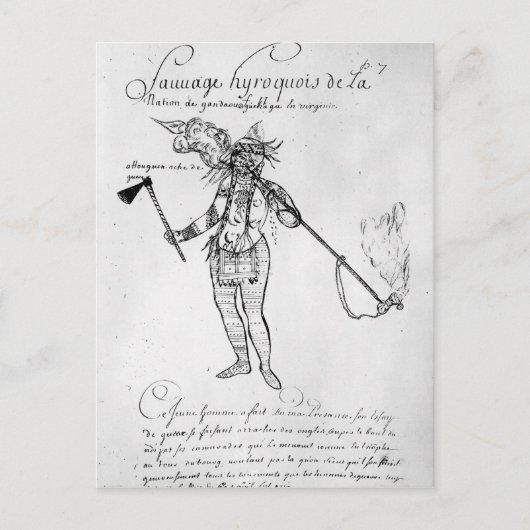 p. 7
Sauuage hyroquois de La
Nation de gandaouaguehaga en virginie.
attouguen ache de
guerre
Ce Jeune homme a fait En ma Presance, son Essay
de guerre se faisant arracher des ongles, coupes le bout du
néz par ses camarades qui Le menoient comme En triophe
au tour du bourg voulant pas la quon creut quil souffriroit
genereusement tous les tourments que les hommes de guerre